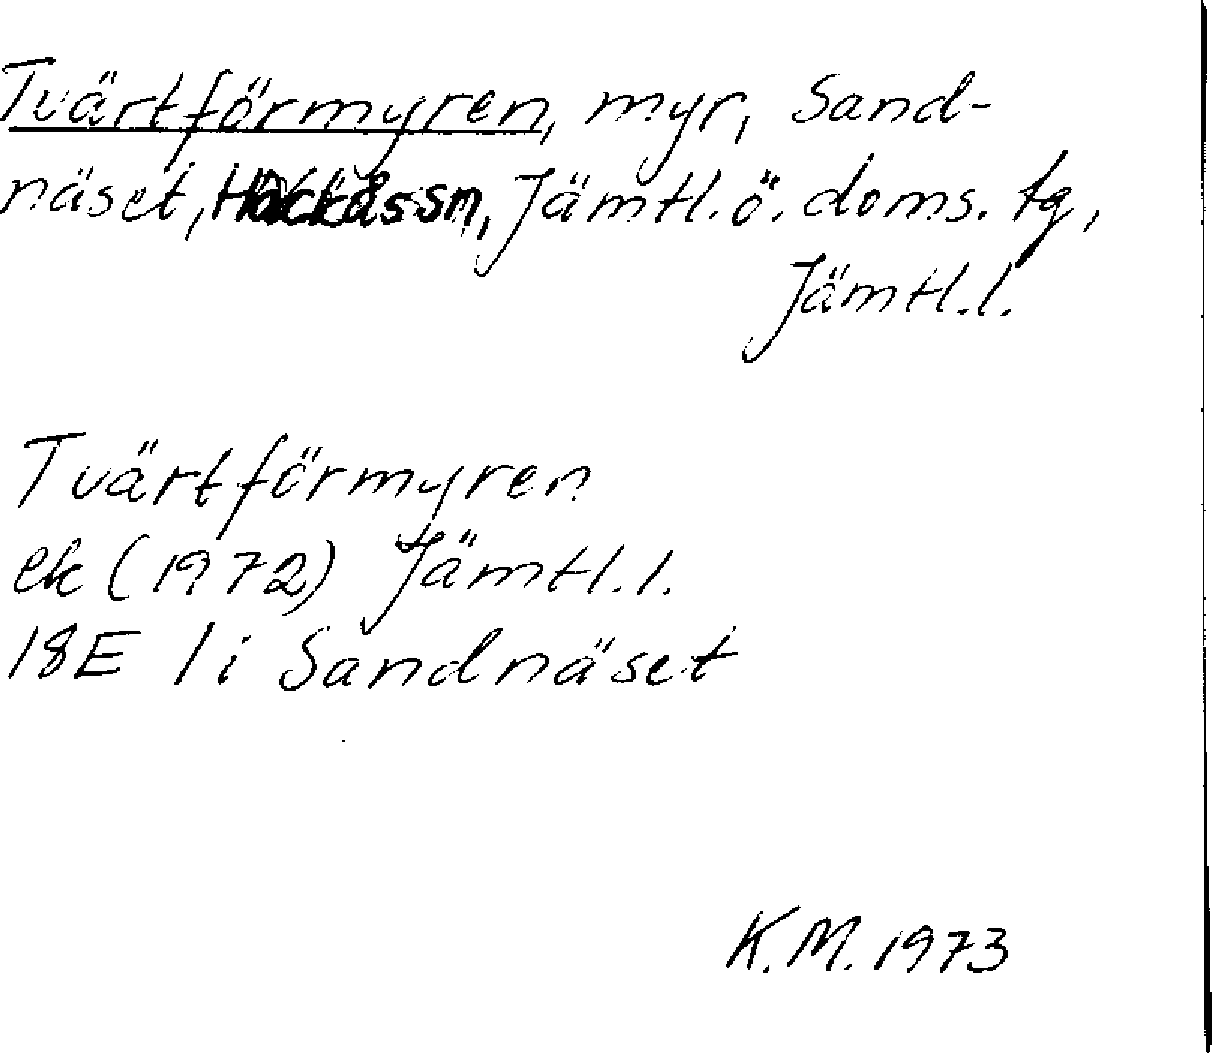 Tvärtförmyren, myr, Sand-
näset, Hackås sn, Jämtl. ö. doms. tg,
Jämtl. l.
Tvärtförmyren
ek (1972) Jämtl. l.
18E 1i Sandnäset
K.M. 1973